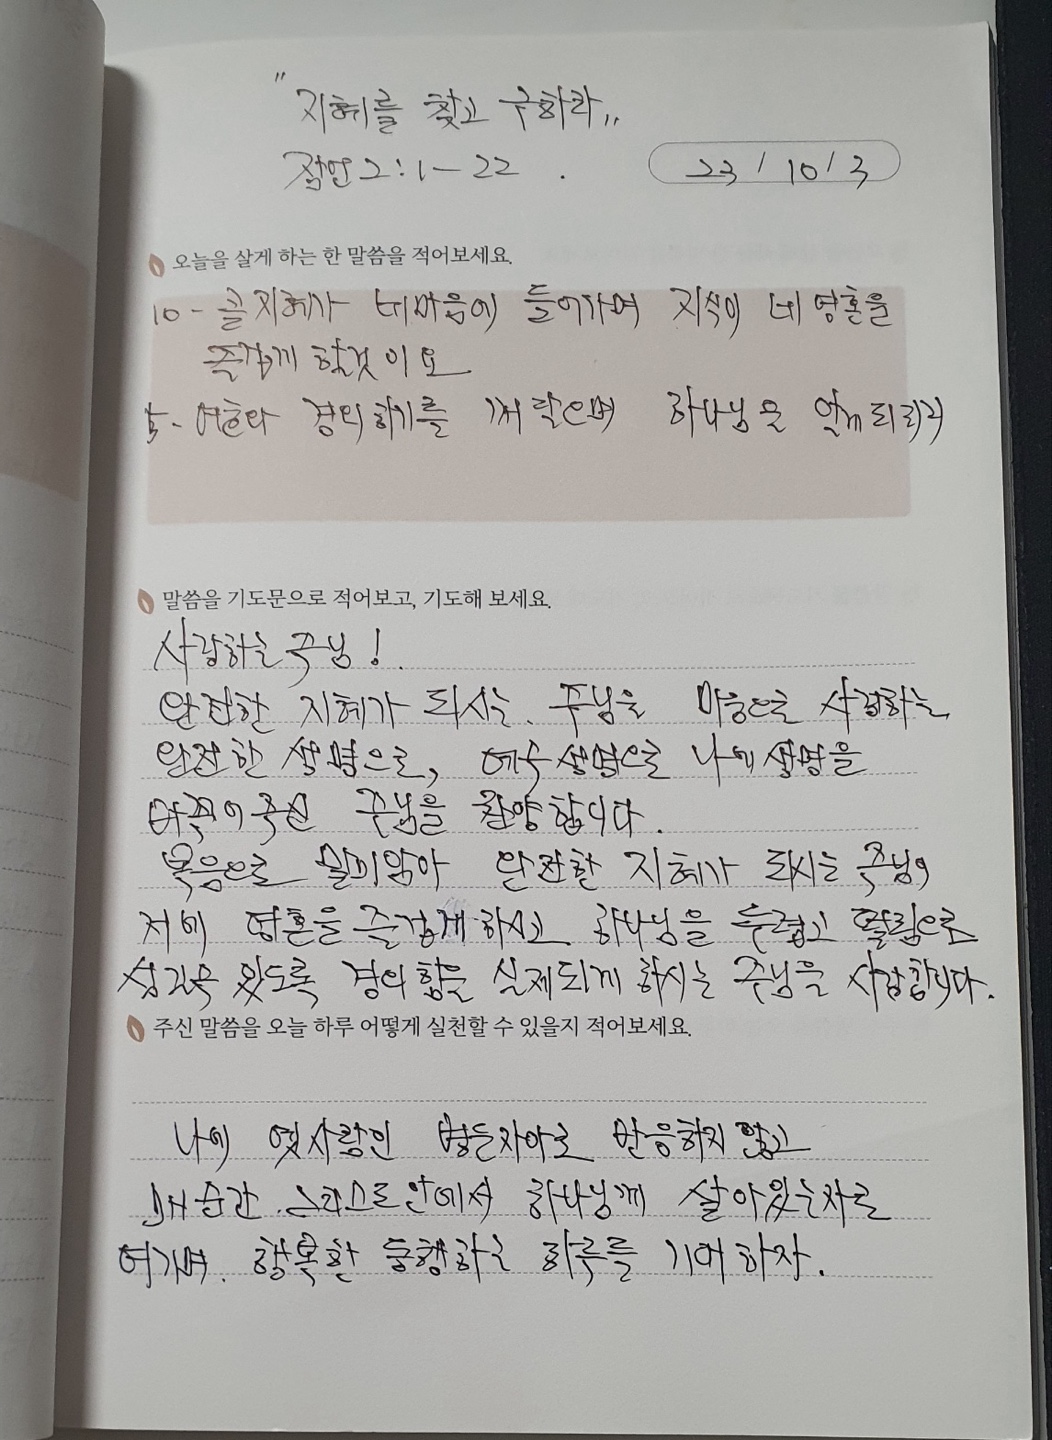 "지혜를 찾고 구하라"
잠언 2:1-22 . 23 / 10 / 3
오늘을 살게 하는 한 말씀을 적어보세요.
10 - 곧 지혜가 네 마음에 들어가며 지식이 네 영혼을
즐겁게 할것이요
5 - 여호와 경외하기를 깨달으며 하나님을 알게 되리니
말씀을 기도문으로 적어보고, 기도해 보세요.
사랑하는 주님!
완전한 지혜가 되시는 주님을 마음으로 사랑하는
완전한 생명으로, 예수생명으로 나에 생명을
바꾸어주신 주님을 찬양합니다.
복음으로 말미암아 완전한 지혜가 되시는 주님이
저에 영혼을 즐겁게 하시고 하나님을 두렵고 떨림으로
섬길수 있도록 경외함을 실제되게 하시는 주님을 사랑합니다.
주신 말씀을 오늘 하루 어떻게 실천할 수 있을지 적어보세요.
나에 옛사람인 병든자아로 반응하지 않고
매순간 그리스도 안에서 하나님께 살아있는자로
여기며. 행복한 동행하는 하루를 기대하자.